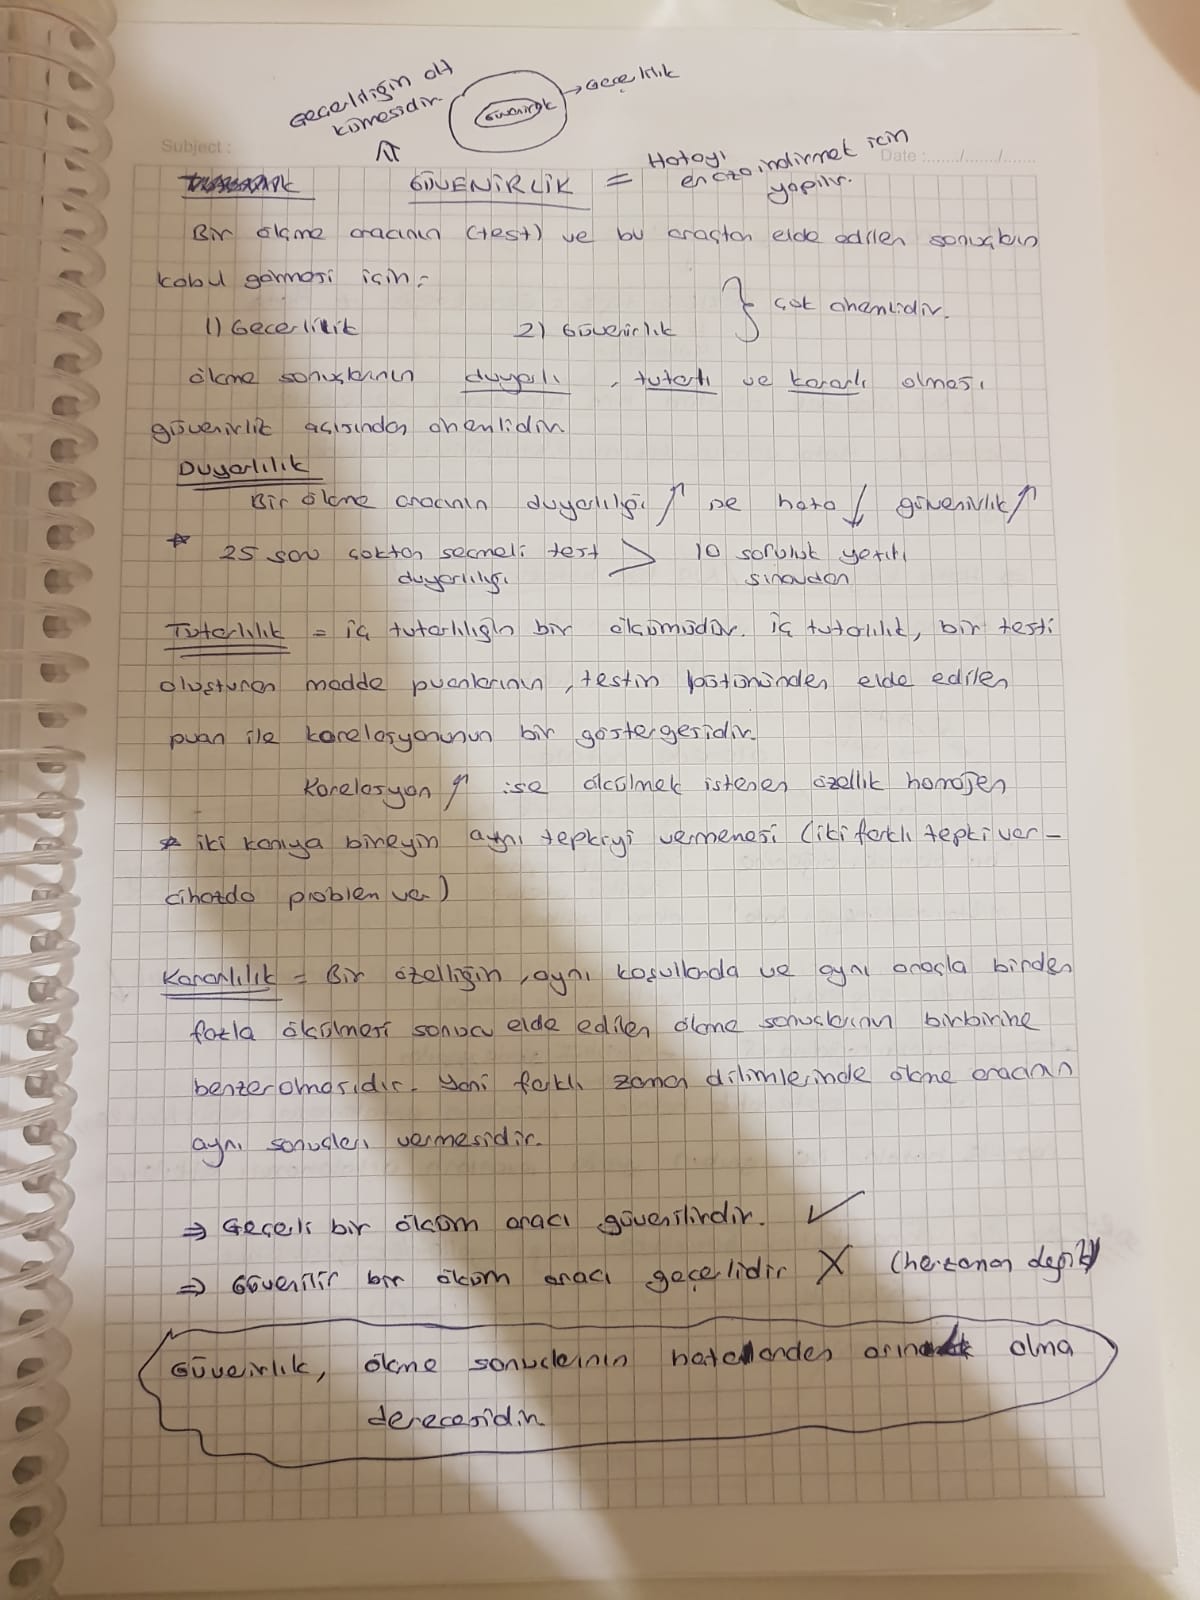 Geçerliliğin alt
kümesidir.
Güvenirlik
→ Geçerlilik
Subject :
Date : ....../....../......
GÜVENİRLİK = Hatayı en aza indirmek için
yapılır.
Bir ölçme aracının (test) ve bu araçtan elde edilen sonuçların
kabul görmesi için:
1) Geçerlilik 2) Güvenirlik } çok önemlidir.
ölçme sonuçlarının duyarlı, tutarlı ve kararlı olması
güvenirlik açısından önemlidir.
Duyarlılık
Bir ölçme aracının duyarlılığı ↑ ise hata ↓ güvenirlik ↑
* 25 soru çoktan seçmeli test > 10 soruluk yazılı
duyarlılığı sınavdan
Tutarlılık = iç tutarlılığın bir ölçümüdür. iç tutarlılık, bir testi
oluşturan madde puanlarının, testin bütününden elde edilen
puan ile korelasyonunun bir göstergesidir.
Korelasyon ↑ ise ölçülmek istenen özellik homojen
* iki konuya bireyin aynı tepkiyi vermemesi (iki farklı tepki var -
cihazda problem var)
Kararlılık = Bir özelliğin, aynı koşullarda ve aynı araçla birden
fazla ölçülmesi sonucu elde edilen ölçme sonuçlarının birbirine
benzer olmasıdır. Yani farklı zaman dilimlerinde ölçme aracının
aynı sonuçları vermesidir.
⇒ Geçerli bir ölçüm aracı güvenilirdir. ✓
⇒ Güvenilir bir ölçüm aracı geçerlidir X (her zaman değil)
Güvenirlik, ölçme sonuçlarının hatalardan arınık olma
derecesidir.